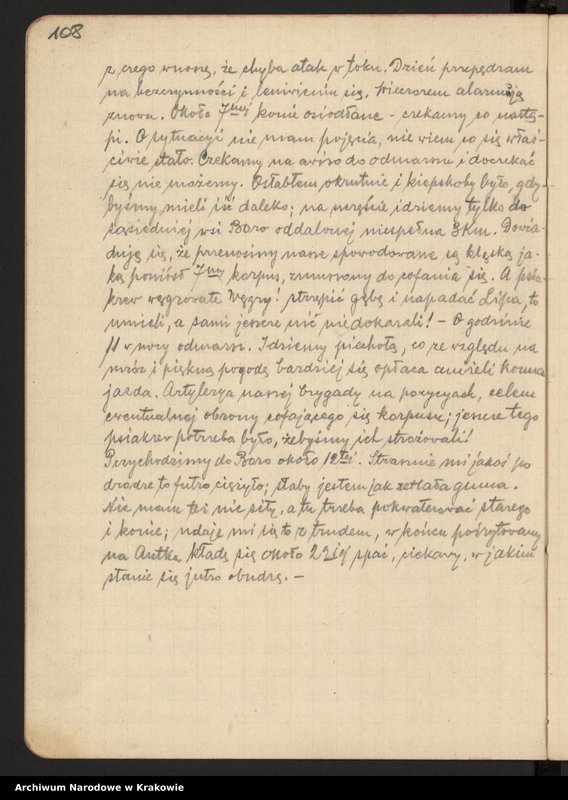 108
z czego wnoszę, że chyba atak w toku. Dzień przepędzam
na bezczynności i lenieniu się, wieczorem alarmują
znowu. Około 7mej konie osiodłane – czekamy co nastą-
pi. O sytuacyi nie mam pojęcia, nie wiem co się właś-
ciwie stało. Czekamy na aviso do odmarszu i doczekać
się nie możemy. Osłabłem okrutnie i kiepskoby było, gdy-
byśmy mieli iść daleko; na szczęście idziemy tylko do
sąsiedniej wsi Boro oddalonej niespełna 3km. Dowia-
duję się, że przenosimy nasze spowodowane są klęską ja-
ką poniósł 7my korpus, zmuszony do cofania się. A psia-
krew węgrowate Węgry! strzępić gębę i napadać Lipa, to
umieli, a sami jeszcze nic nie dokazali! – O godzinie
11 w nocy odmarsz. Idziemy piechotą, co ze względu na
mróz i piękną pogodę bardziej się opłaca aniżeli konna
jazda. Artylerya naszej brygady na pozycyach, celem
ewentualnej obrony cofającego się korpusu; jeszcze tego
psiakrew potrzeba było, żebyśmy ich strożowali!
Przychodzimy do Boro około 12tej. Strasznie mi jakoś po
drodze to futro ciężyło; słaby jestem jak zetlała guma.
Nie mam też nic siły, a tu trzeba pokwaterować starego
i konie; udaje mi się to z trudem, w końcu poirytowany
na Antka kładę się około 2giej spać, ciekawy, w jakim
stanie się jutro obudzę. –
Archiwum Narodowe w Krakowie